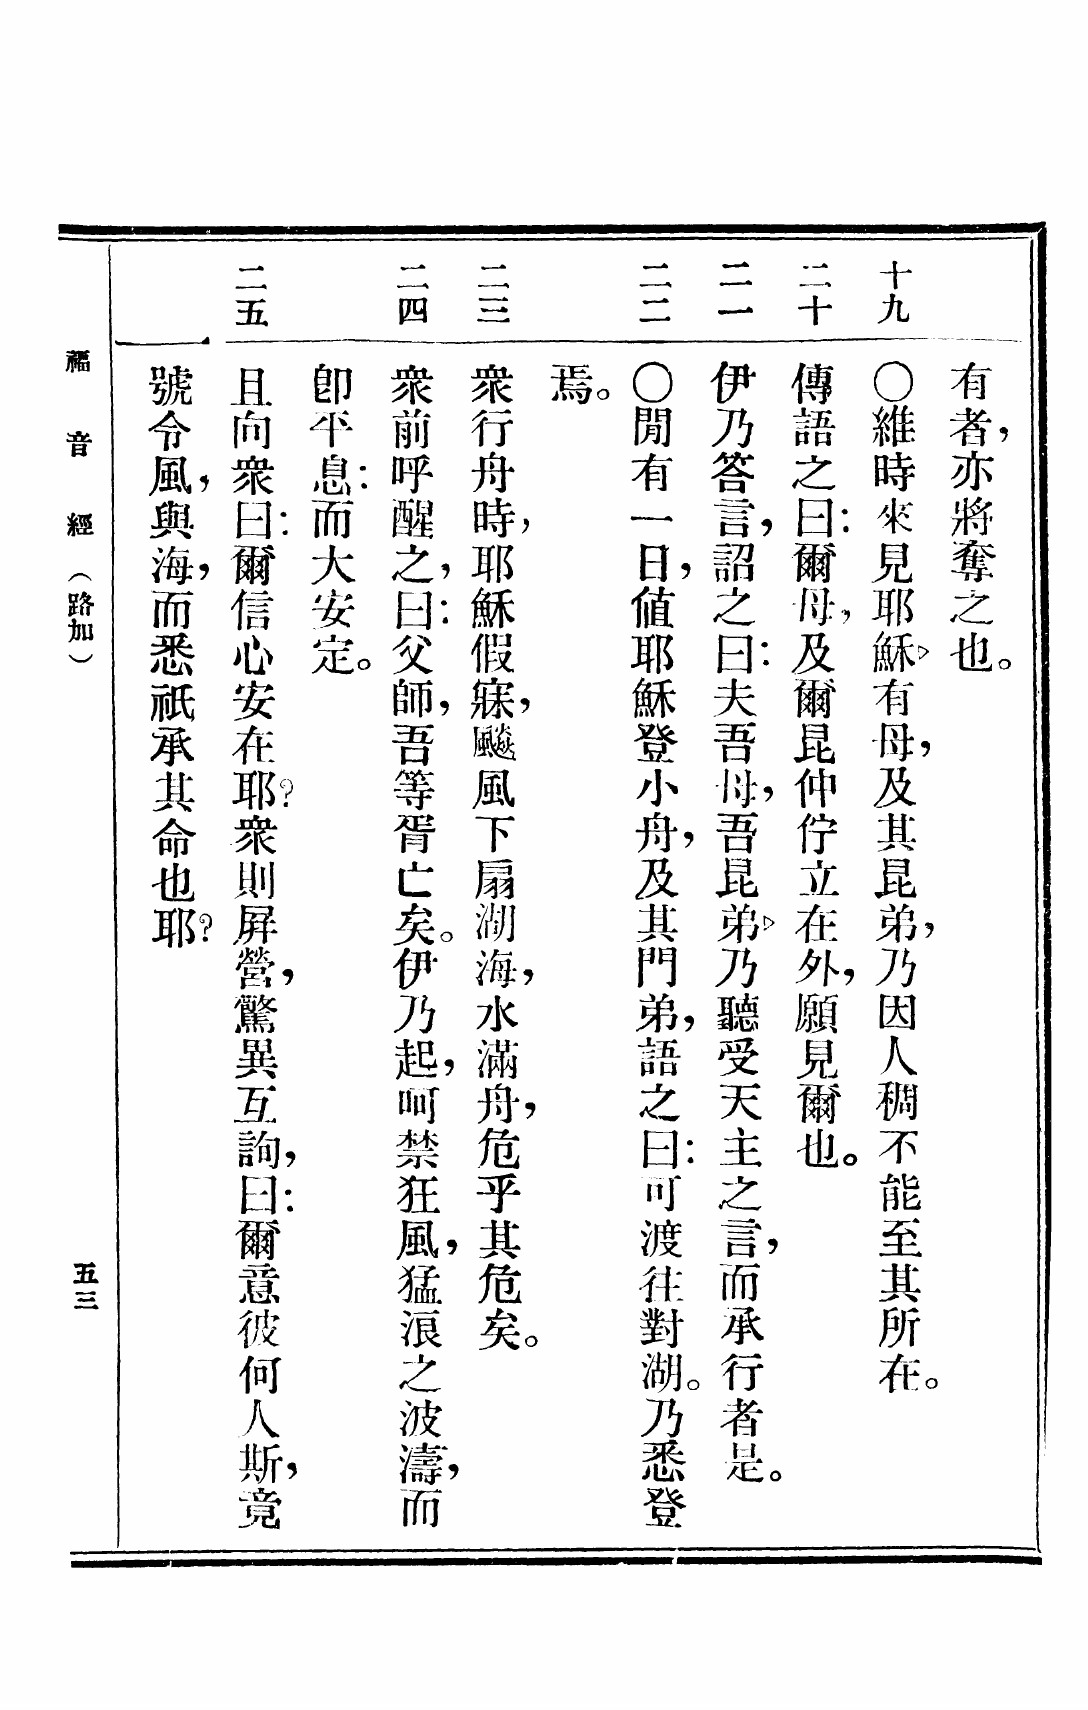 有者，亦將奪之也。
十九 ○維時來見耶穌，有母，及其昆弟，乃因人稠不能至其所在。
二十 傳語之曰：爾母，及爾昆仲佇立在外，願見爾也。
二一 伊乃答言，詔之曰：夫吾母，吾昆弟，乃聽受天主之言，而承行者是。
二二 ○閒有一日，値耶穌登小舟，及其門弟，語之曰：可渡往對湖。乃悉登
焉。
二三 衆行舟時，耶穌假寐，飈風下扇湖海，水滿舟，危乎其危矣。
二四 衆前呼醒之，曰：父師，吾等胥亡矣。伊乃起，呵禁狂風，猛浪之波濤，而
卽平息：而大安定。
二五 且向衆曰：爾信心安在耶？衆則屛營，驚異互詢，曰：爾意彼何人斯，竟
號令風，與海，而悉祇承其命也耶？
福音經（路加） 五三